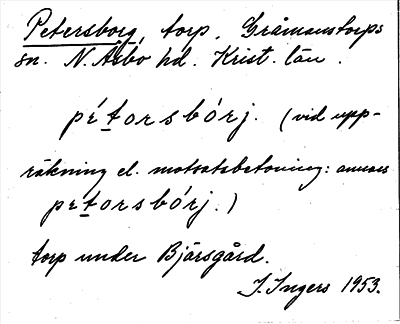 Petersborg, torp, Gråmanstorps
sn. N. Åsbo hd. Krist. län.
pétorsbórj. (vid upp-
räkning el. motsatsbetoning: annars
petorsbórj.)
torp under Bjärsgård.
I. Ingers 1953.